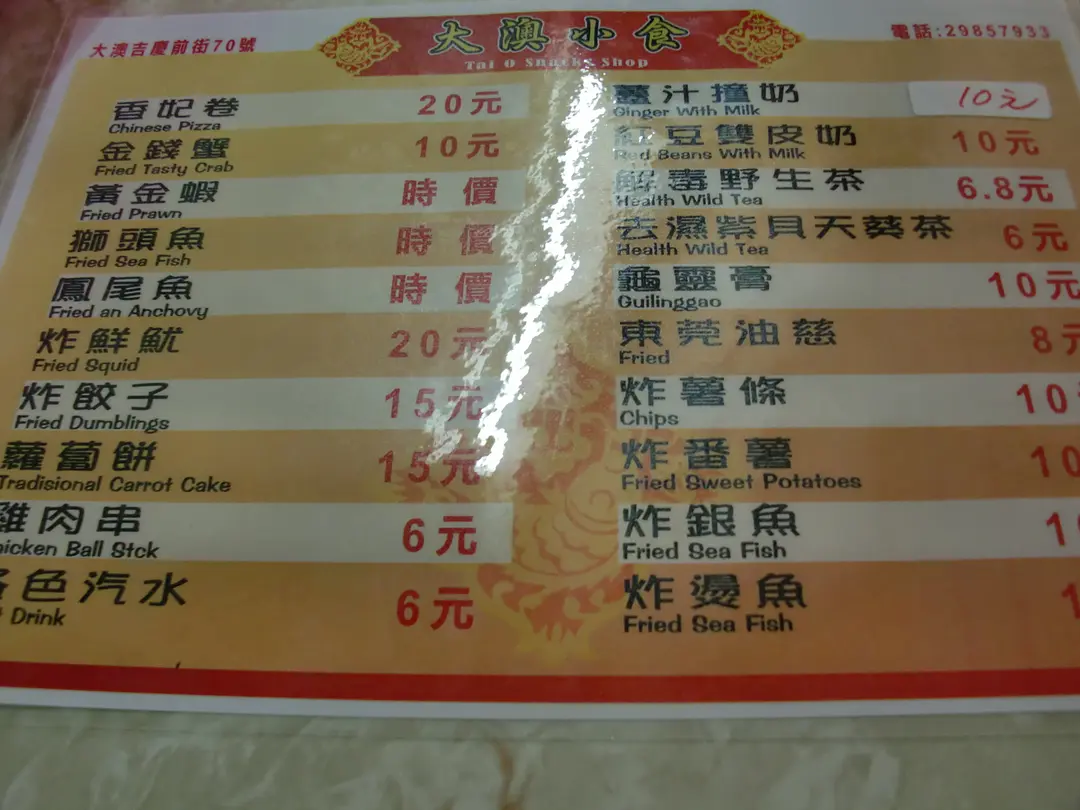 大澳吉慶前街70號
大澳小食
Tai O Snacks Shop
電話:29857933
香妃卷 20元
Chinese Pizza
金錢蟹 10元
Fried Tasty Crab
黃金蝦 時價
Fried Prawn
獅頭魚 時價
Fried Sea Fish
鳳尾魚 時價
Fried an Anchovy
炸鮮魷 20元
Fried Squid
炸餃子 15元
Fried Dumblings
蘿蔔餅 15元
Tradisional Carrot Cake
雞肉串 6元
hicken Ball Stck
各色汽水 6元
Drink
薑汁撞奶 10元
Ginger With Milk
紅豆雙皮奶 10元
Red Beans With Milk
解毒野生茶 6.8元
Health Wild Tea
去濕紫貝天葵茶 6元
Health Wild Tea
龜靈膏 10元
Guilinggao
東莞油慈 8元
Fried
炸薯條 10
Chips
炸番薯 10
Fried Sweet Potatoes
炸銀魚 1
Fried Sea Fish
炸燙魚 1
Fried Sea Fish